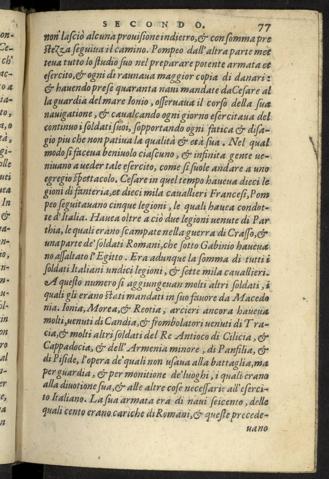 SECONDO. 77
non lasciò alcuna provisione indietro, & con somma pre
stezza seguiva il camino. Pompeo dall'altra parte met
teva tutto lo studio suo nel preparare potente armata et
esercito, & ogni dì raunava maggior copia di danari:
& havendo prese quaranta navi mandate da Cesare al
la guardia del mare Ionio, osservava il corso della sua
navigatione, & cavalcando ogni giorno esercitava del
continuo i soldati suoi, sopportando ogni fatica & disa-
gio piu che non pativa la qualità & età sua. Nel qual
modo si faceva benivolo ciascuno, & infinita gente ve-
nivano a veder tale esercito, come si suole andare a uno
egregio spettacolo. Cesare in quel tempo haveva dieci le
gioni di fanteria, et dieci mila cavallieri Francesi, Pom
peo seguitavano cinque legioni, le quali haveva condot-
te d'Italia. Haveva oltre a ciò due legioni venute di Par
thia, le quali erano scampate nella guerra di Crasso, &
una parte de' soldati Romani, che sotto Gabinio haveva
no assaltato l'Egitto. Era adunque la somma di tutti i
soldati Italiani undici legioni, & sette mila cavallieri.
A questo numero si aggiungevan molti altri soldati, i
quali gli erano stati mandati in suo favore da Macedo
nia. Ionia, Morea, & Beotia, arcieri ancora haveva
molti, venuti di Candia, & frombolatori venuti di Tra-
cia, & molti altri soldati del Re Antioco di Cilicia, &
Cappadocia, & dell'Armenia minore, di Panfilia, &
di Piside, l'opera de' quali non usava alla battaglia, ma
per guardia, & per monitione de' luoghi, i quali erano
alla divotione sua, & alle altre cose necessarie all'eserci-
to Italiano. La sua armata era di navi seicento, delle
quali cento erano cariche di Romani, & queste precede-
vano